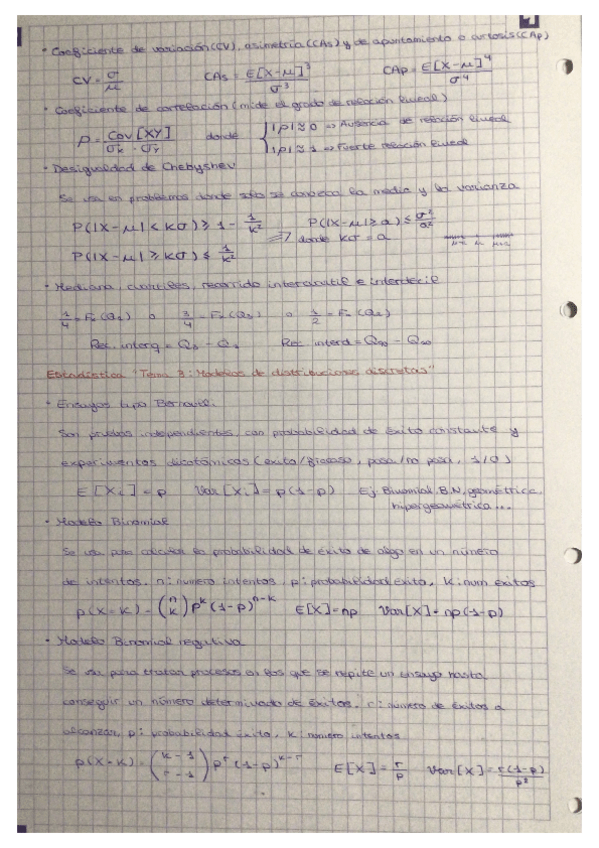 · Coeficiente de variación (CV), asimetría (CAs) y de apuntamiento o curtosis (CAp)
CV = σ/μ    CAs = E[X-μ]³/σ³    CAp = E[X-μ]⁴/σ⁴
· Coeficiente de correlación (mide el grado de relación lineal)
ρ = Cov[XY]/(σx · σy)    donde    { |ρ| ≈ 0 => Ausencia de relación lineal
|ρ| ≈ 1 => Fuerte relación lineal
· Desigualdad de Chebyshev
Se usa en problemas donde sólo se conozca la media y la varianza
P(|X-μ| < kσ) ≥ 1 - 1/k²    P(|X-μ| ≥ a) ≤ σ²/a²
=> donde kσ = a
P(|X-μ| ≥ kσ) ≤ 1/k²
· Mediana, cuartiles, recorrido intercuartil e interdecil
1/4 = Fx(Q₁) o 3/4 = Fx(Q₃) o 1/2 = Fx(Q₂)
Rec. interq = Q₃ - Q₁    Rec. interd = Q₉₀ - Q₁₀
Estadística "Tema 3: Modelos de distribuciones discretas"
· Ensayos tipo Bernoulli.
Son pruebas independientes, con probabilidad de éxito constante y
experimentos dicotómicos (exito/fracaso, pasa/no pasa, 1/0)
E[Xi] = p    Var[Xi] = p(1-p)    Ej. Binomial, B.N, geométrica,
hipergeométrica...
· Modelo Binomial
Se usa para calcular la probabilidad de éxito de algo en un número
de intentos. n: numero intentos, p: probabilidad exito, k: num exitos
p(X=k) = (n k) pᵏ (1-p)ⁿ⁻ᵏ    E[X] = np    Var[X] = np(1-p)
· Modelo Binomial negativa
Se usa para tratar procesos en los que se repite un ensayo hasta
conseguir un número determinado de éxitos. r: numero de éxitos a
alcanzar, p: probabilidad éxito, k: numero intentos
p(X=k) = (k-1 r-1) pʳ (1-p)ᵏ⁻ʳ    E[X] = r/p    Var[X] = r(1-p)/p²